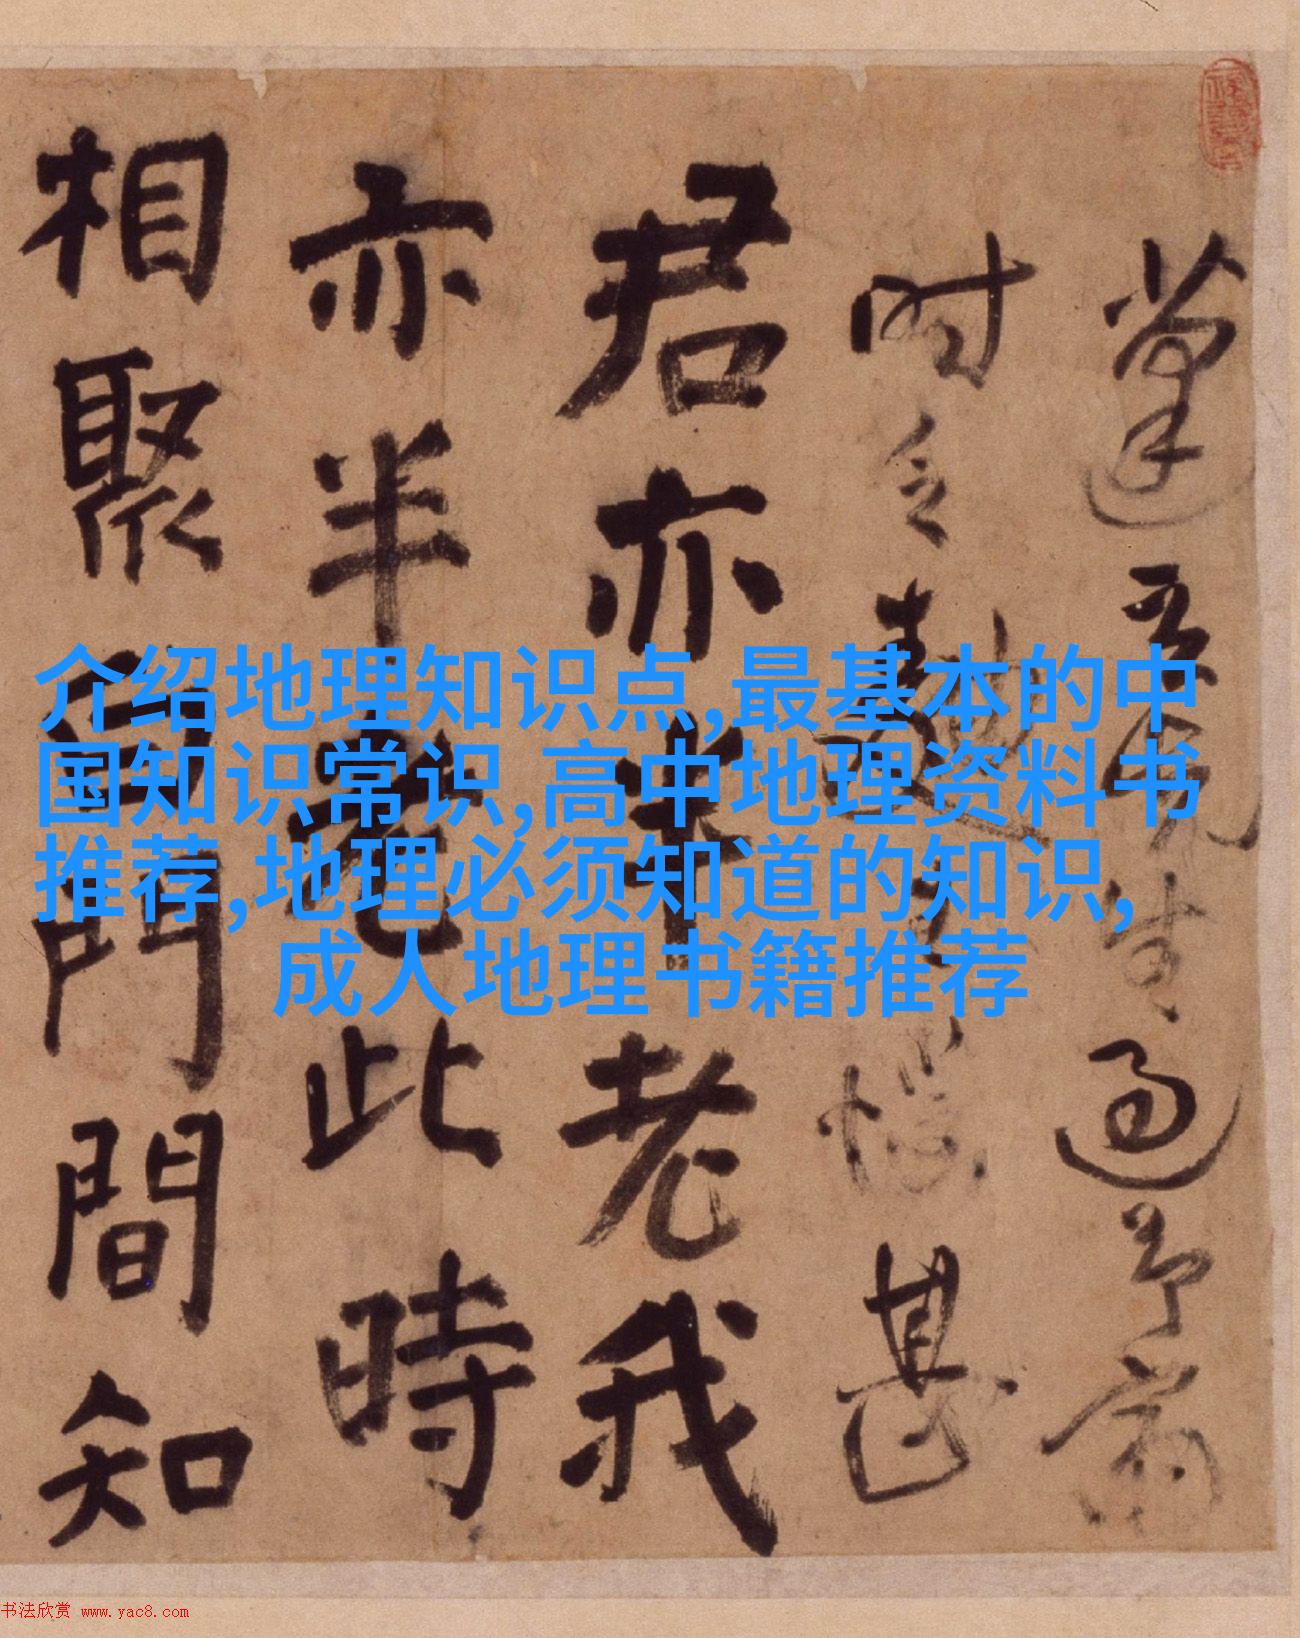 過予齋
時
甚
君亦半老我
亦半老此時
相聚門間知
介绍地理知识点,最基本的中
国知识常识,高中地理资料书
推荐,地理必须知道的知识,
成人地理书籍推荐
书法欣赏 www.yac8.com